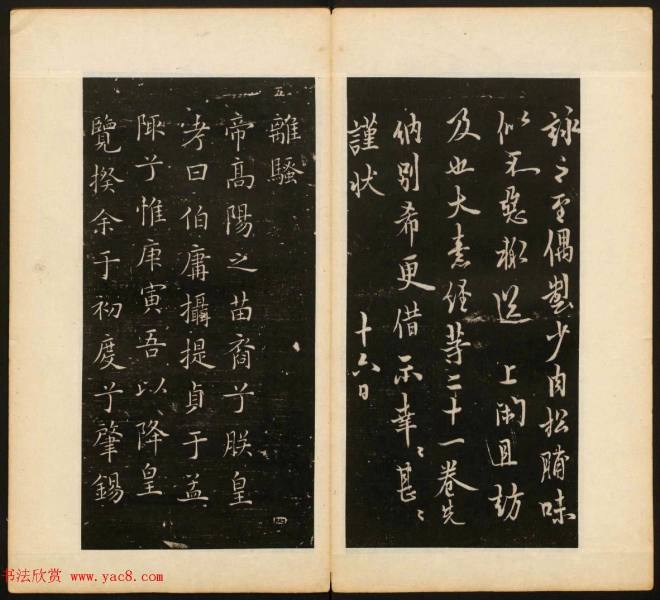 詠之至偶製少肉松脯味
似不惡輒送 上 且訪
及也大素經等二十一卷先
納别希更借示幸〻甚〻
謹状
十六日
五
離騷
帝高陽之苗裔兮朕皇
考曰伯庸攝提貞于孟
陬兮惟庚寅吾以降皇
覽揆余于初度兮肇錫
四
书法欣赏 www.yac8.com